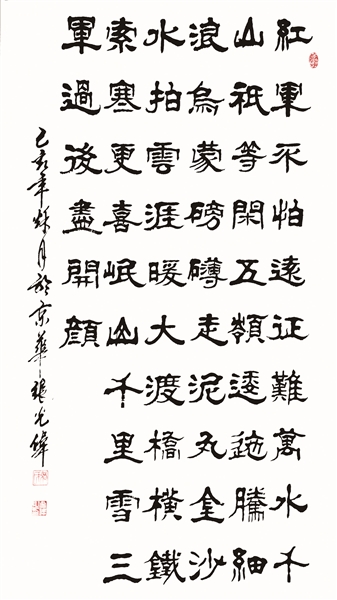 紅軍不怕遠征難萬水千
山祇等閑五嶺逶迤騰細
浪烏蒙磅礴走泥丸金沙
水拍雲涯暖大渡橋橫鐵
索寒更喜岷山千里雪三
軍過後盡開顏
己亥年秌月於京華張光緯